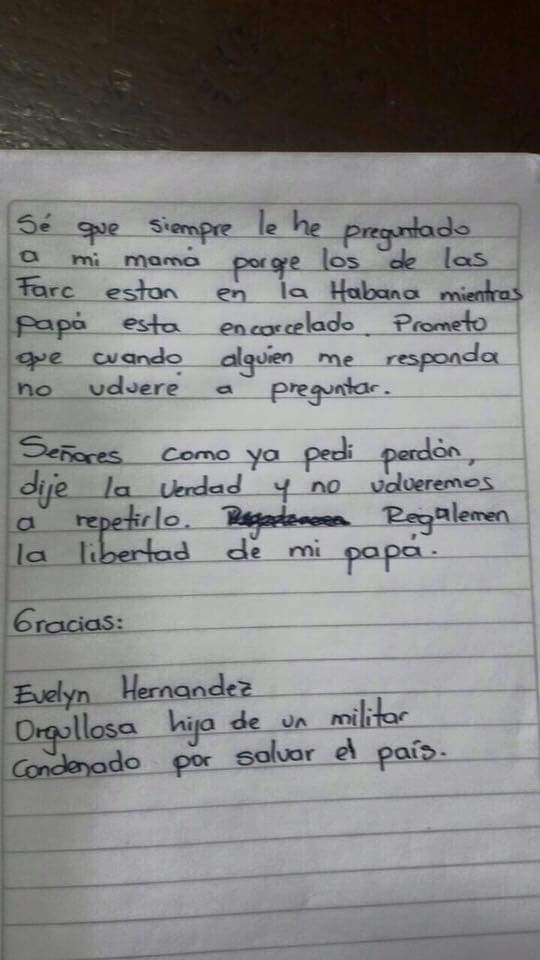 Sé que siempre le he preguntado
a mi mamá porqe los de las
Farc estan en la Habana mientras
papá esta encarcelado. Prometo
que cuando alguien me responda
no volveré a preguntar.
Señores como ya pedi perdón,
dije la verdad y no volveremos
a repetirlo. Regálemen
la libertad de mi papá.
Gracias:
Evelyn Hernandez
Orgullosa hija de un militar
Condenado por salvar el país.